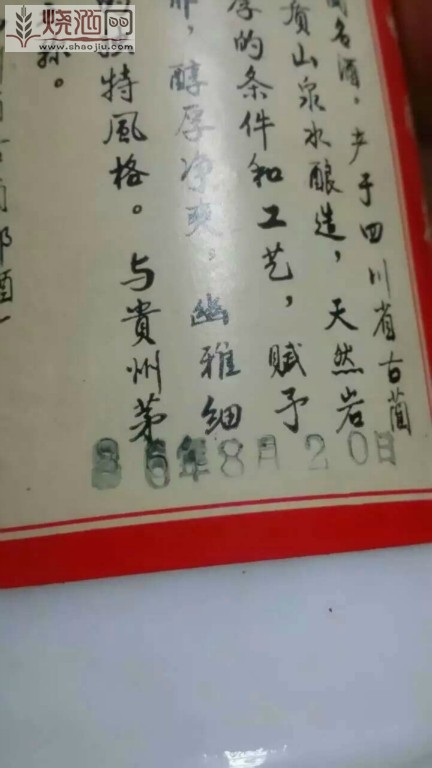 烧酒网
www.shaojiu.com
名酒，产于四川省古蔺
质山泉水酿造，天然岩
厚的条件和工艺，赋予
，醇厚净爽，幽雅细
独特風格。与貴州茅
。
古蔺郎酒
86年8月20日